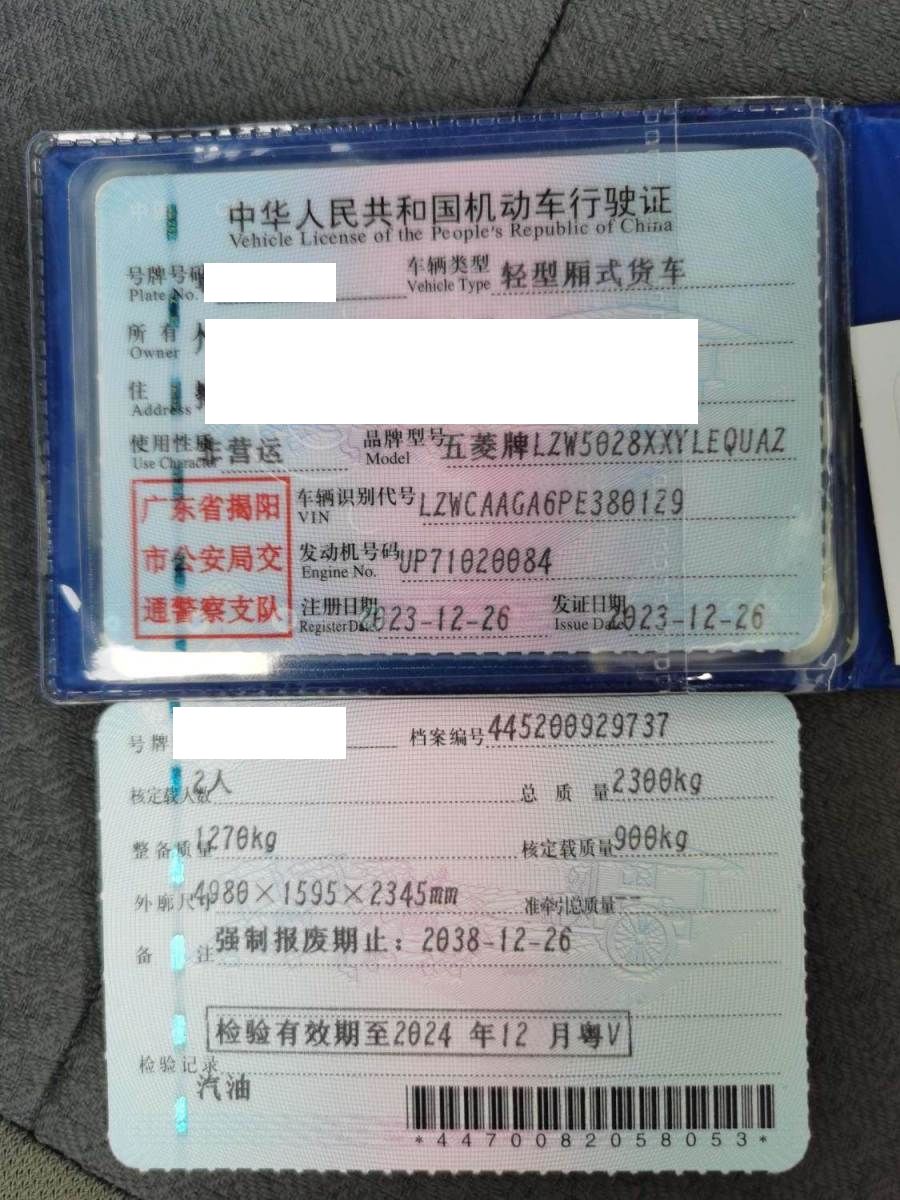 中华人民共和国机动车行驶证
Vehicle License of the People's Republic of China
号牌号码 车辆类型 轻型厢式货车
Plate No. Vehicle Type
所有人
Owner
住
Address
使用性质 非营运 品牌型号 五菱牌LZW5028XXYLEQUAZ
Use Character Model
广东省揭阳
市公安局交
通警察支队
车辆识别代号 LZWCAAGA6PE380129
VIN
发动机号码 UP71020084
Engine No.
注册日期 2023-12-26 发证日期 2023-12-26
Register Date Issue Date
号牌 档案编号 445200929737
核定载人数 2人 总质量 2300kg
整备质量 1270kg 核定载质量 900kg
外廓尺寸 4980×1595×2345mm 准牵引总质量 --
备注 强制报废期止: 2038-12-26
检验有效期至2024 年12 月粤V
检验记录
汽油
*4470082058053*